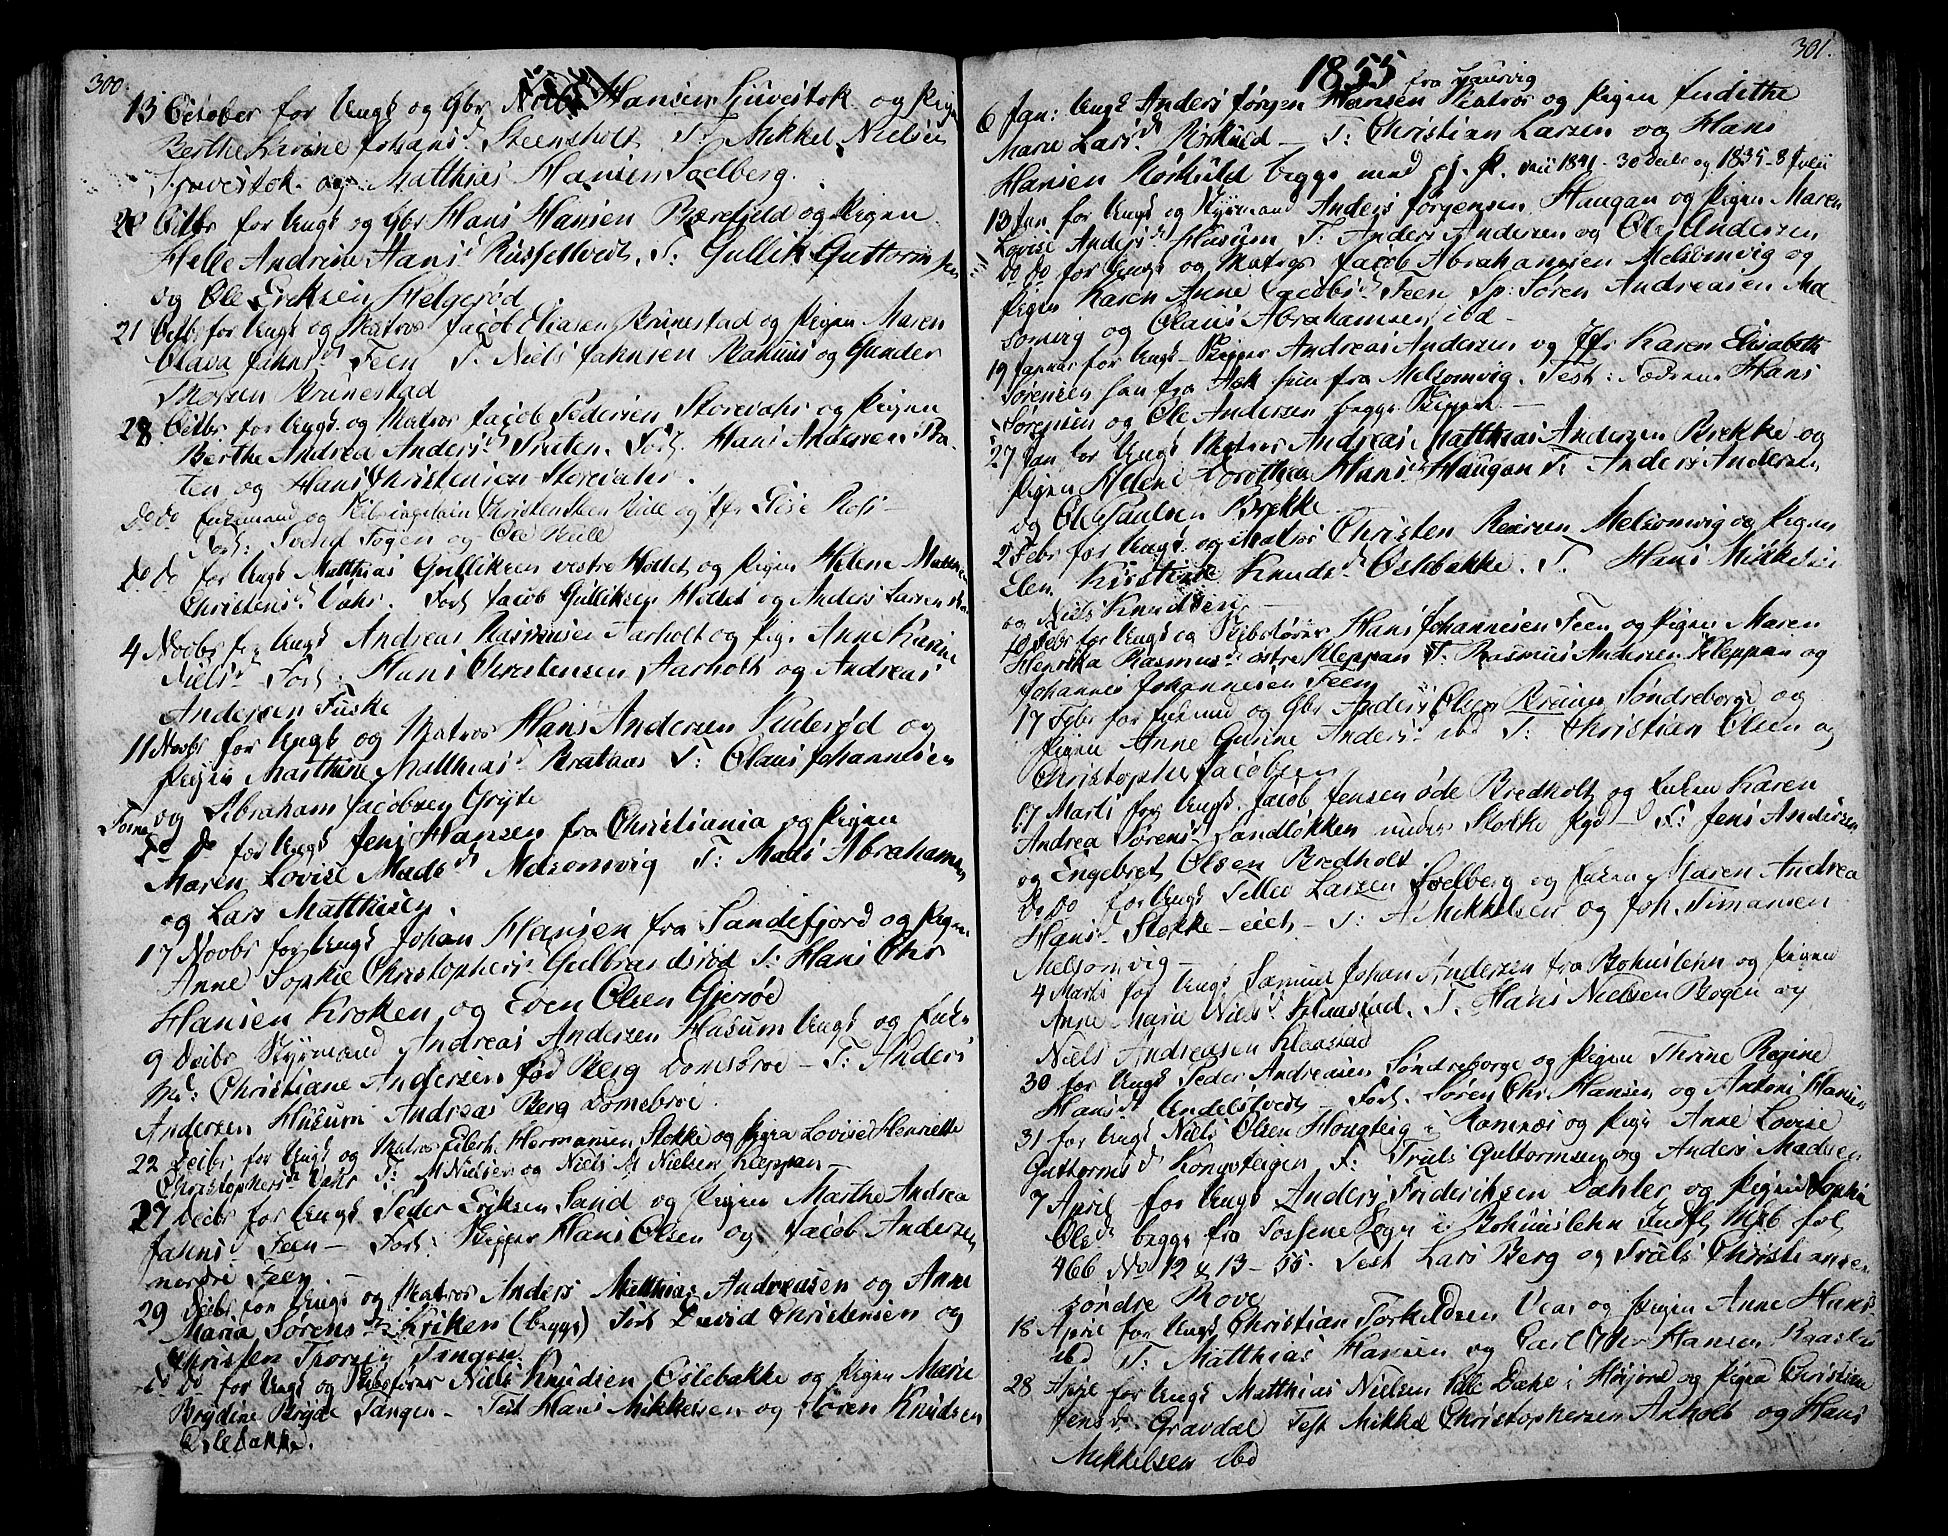 300.
13 October for Ungk og Gbr Niels Hansen Liuvestok og Pigen
Berthe Karine Johansd Steensholt T: Mikkel Nielsen
og Matthias Hansen Soelberg.
20 Octbr for Ungk og Gbr Hans Hansen Bærefjeld og Pigen
Helle Andrine Hansd Russeltvedt. T: Gullik Guttormsen
og Ole Eriksen Helgerød
21 Octb for Ungk og Matros Jacob Eliasen Brunestad og Pigen Maren
Olava Jahnsd Feen T. Niels Jahnsen Rahuus og Gunder
Thorsen Brunestad
28 Octbr for Ungk og Matros Jacob Pedersen Storevahr og Pigen
Berthe Andrea Andersd Traten. Forl. Hans Andersen Tra-
ten og Hans Christensen Storevahr.
Do Do Enkemand og Christensen Bulle og Jfr Lise
Forl: Svend Foyen og Ole Bulle
Do Do for Ungk Matthias Gulliksen vestre Holtet og Pigen Helene
Christensd Vahr. Forl Jacob Gulliksen Holtet og Anders Larsen
4 Novbr for Ungk Andreas Rasmusen Aarholt og Pige Anne Karine
Nielsd Forl: Hans Christensen Aarholt og Andreas
Andersen Fuske
11 Novbr for Ungk og Matros Hans Andersen Puterød og
Pigen Marthine Matthiasd Brataas T: Olaus Johannesen
og Abraham Jacobsen Gryte
Do Do for Ungk Jens Hansen fra Christiania og Pigen
Maren Lovise Madsd Melsomvig T: Mads Abrahamsen
og Lars Matthisen.
17 Novbr for Ungk Johan Hansen fra Sandefjord og Pigen
Anne Sophie Christophersd Gulbrandsrød T: Hans Chr
Hansen Kroken og Even Olsen Gjerøe
9 Decbr Styrmand Andreas Andersen Husum Ungk og Enke
Md: Christiane Andersen fød Berg Domebroe - T: Anders
Andersen Husum Andreas Berg Domebroe.
22 Decbr for Ungk og Matros Eilert Hermansen Stokke og Pigen Lovise Henriette
Christophersd Vahr T: M Nielsen og Niels M Nielsen Kleppan -
27 Decbr for Ungk Peder Eriksen Sand og Pigen Marthe Andrea
Jahnsd Feen - Forl. Skipper Hans Olsen og Jacob Andersen
nordre Feen. -
29 Decbr for Ungk og Matros Anders Matthias Andreasen og Anne
Maria Sørensd Kriken (begge) Forl David Christensen og
Christen Thorsen Tangen
Do Do for Ungk og Skibsfører Niels Knudsen Oslebakke og Pigen Marie
Brydine Bryde Tangen - Test Hans Mikkelsen og Søren Knudsen
Oslebakke.
301.
1855
fra Laurvig
6 Jan: Ungk Anders Jørgen Hansen Matros og Pigen Judithe
Marie Larsd Rørkuld - T: Christian Larsen og Hans
Hansen Rørkuld begge med 1841 - 30 Decbr og 1835 - 8 Julii
13 Jan for Ungk og Styrmand Anders Jørgensen Haugan og Pigen Maren
Lovise Andersd Husum T: Anders Andersen og Ole Andersen
Do Do for Ungk og Matros Jacob Abrahamsen Melsomvig og
Pigen Karen Anne Jacobsd Feen Sp: Søren Andreasen Mel-
somvig og Olaus Abrahamsen ibd -
19 Januar for Ungk - Skipper Andreas Andersen og Jfr Karen Elisabeth
Sørensen han fra Ask hun fra Melsomvig. Test: Fædrene Hans
Sørensen og Ole Andersen begge Skippere -
27 Jan for Ungk Matros Andreas Matthias Andersen Brekke og
Pigen Helene Dorothea Hansd Haugan T: Anders Andersen
og Ole Paulsen Brekke
2 Febr for Ungk og Matros Christen Reiersen Melsomvig og Pigen
Elen Kirstine Knudsd Oslebakke. T. Hans Mikkelsen
og Niels Knudsen -
10 Febr for Ungk og Skibsfører Hans Johannesen Feen og Pigen Maren
Henrika Rasmusd østre Kleppan T: Rasmus Andersen Kleppan og
Johannes Johannesen Feen
17 Febr for Enkemd og Gbr Anders Olsen Bruun Søndreborge og
Pigen Anne Gurine Andersd ibd T: Christian Olsen og
Christopher Jacobsen
17 Marts for Ungk. Jacob Jensen øde Bredholt og Enken Karen
Andrea Sørensd Sandløkken under Stokke Pgd - T: Jens Andersen
og Engebret Olsen Bredholt.
Do Do for Ungk Tellev Larsen Soelberg og Enken Maren Andrea
Hansd Stokke - eiet - T: A Mikkelsen og Joh. Timansen
Melsomvig -
4 Marts for Ungk Samuel Johan Andersen fra Bohuslehn og Pigen
Anne Marie Nielsd Klaastad. T. Hans Nielsen Bogen og
Niels Andreasen Klaastad
30 for Ungk Peder Andreasen Søndreborge og Pigen Thrine Regine
Hansd Undelstvedt Forl. Søren Chr Hansen og Anton Hansen
31 for Ungk Niels Olsen Hougberg i Ramnæs og Pige Anne Lovise
Guttormsd Kongsteigen F: Truls Guttormsen og Anders Madsen
7 April for Ungk Anders Frideriksen Dahler og Pigen Sophia
Olsd begge fra Fossene Sogn i Bohuuslehn Indfl Mgb fol,
466 No 12 & 13 - 55. Test Lars Berg og Truls Christiansen
søndre Rove
18 April for Ungk Christian Torkildsen Vear og Pigen Anne Hansd
ibd T: Matthias Hansen og Carl Chr Hansen Raastad
28 April for Ungk Matthias Nielsen Lille Dahle i Høijord og Pigen Christine
Jensd Gravdal Test Mikkel Christophersen Arholt og Hans
Mikkelsen ibd